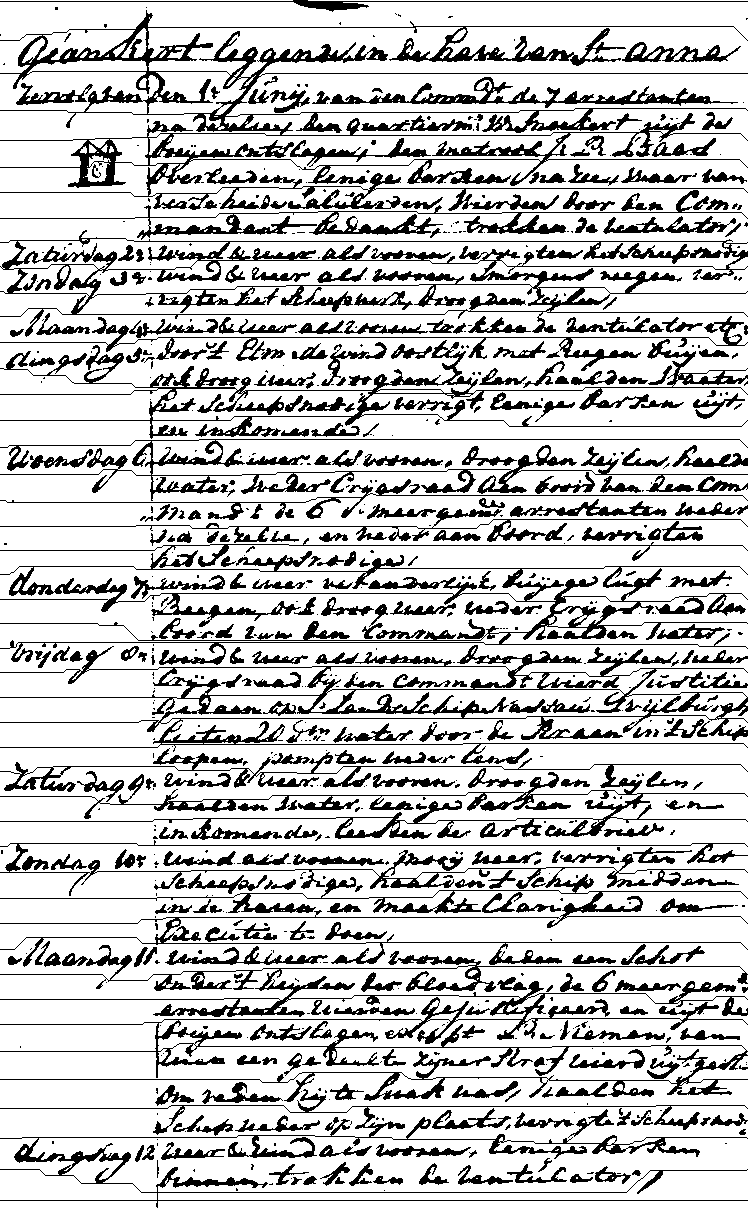 Geankert leggende, in de have van St. anna
Vervolg van den 1e Junij, van den Commdt de 7 arrestanten
na dezelve, den quartierm: W: Snoekert uijt de
boeijen ontslagen; den matroos J: D: Baas
Overleeden, Eenige barken na zee, waar van
verscheide salueerden, wierden door den Com„
mandant bedankt, trokken de ventulator,
Zaturdag 2e wind & weer als vooren, verrigten het scheepsnodige
Zondag 3e wind & weer als vooren, smorgens reegen ver„
rigten het scheepwerk, droogden zeijlen,
Maandag 4e wind & weer als vooren trokken de ventulator etc:
dingsdag 5e door 't Etm: de wind oostlijk met Reegen buijen,
ook droog weer, droogden zeijlen, haalden waater,
het scheepsnodige verrigt, Eenige barken uijt,
en inkomende,
Woensdag 6 wind & weer als vooren, droogden zeijlen, haalde
water, weder Crijgsraad aan boord van den Com
„mandt de 6 meergemde arrestanten weder
na dezelve, en weder aan boord, verrigten
het scheepsnodige,
donderdag 7e wind & weer veranderlijk, buijege lugt met
Reegen, ook droog weer, weder Crijgsraad aan
boord van den Commandt, haalden water,
Vrijdag 8e wind & weer als vooren, droogden zeijlen, weder
Crijgsraad bij den Commandt wierd Justitie
gedaan op s' Lands Schip Nassau Wijlburgh
lieten 20 dm water door de Kraan in 't Schip
loopen, pompten weder lens,
Zaturdag 9e wind & weer als vooren, droogden zeijlen,
haalden water, Eenige barken uijt, en
inkomende, leesden de articulbrief,
Zondag 10e wind als vooren, mooij weer, verrigten het
scheepsnodige, haalden 't schip midden
in de haven, en maakte Clarigheid om
Executie te doen,
Maandag 11 wind & weer als vooren, deden een Schot
onder 't heijsen der bloedvlag, de 6 meergemde
arrestanten wierden Gejustificeerd en uijt de
boeijen ontslagen, except D: Nieman, van
wien een gedeelte zijner straf wierd uijtgestel
om reden hij te swak was, haalden het
Schip weder op zijn plaats, verrigte 't scheepsnod:
dingsdag 12 weer & wind als vooren, Eenige barken
binnen, trokken de ventulator,